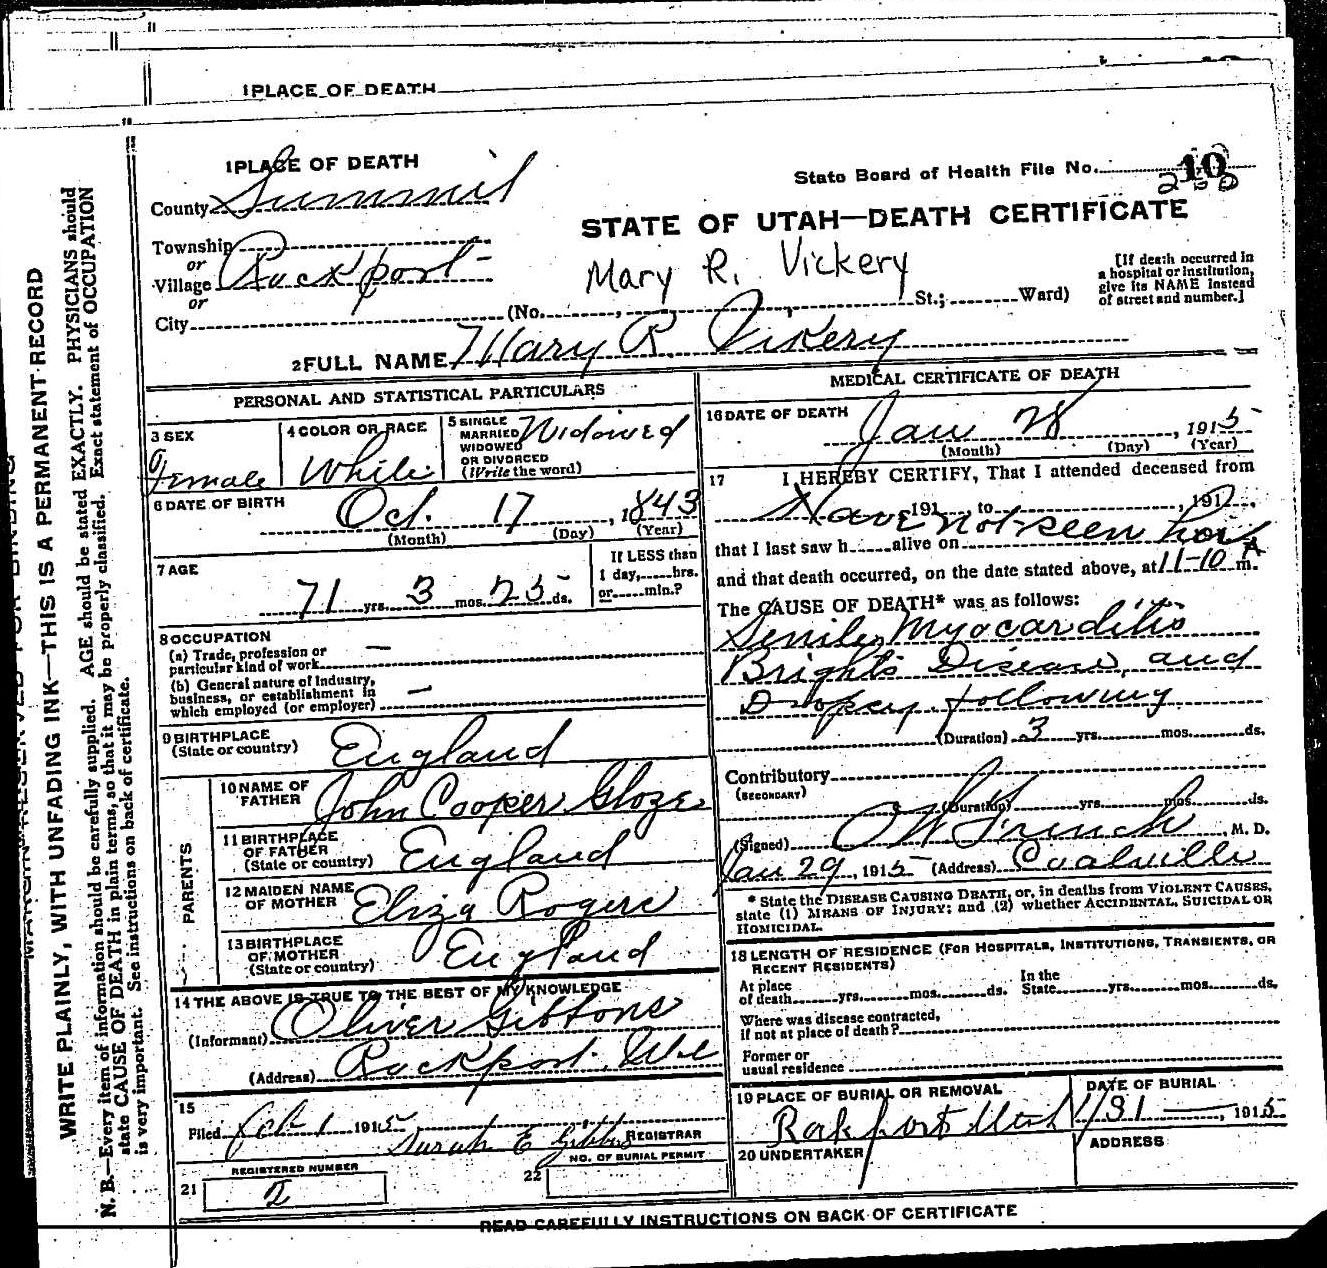 1 PLACE OF DEATH
1 PLACE OF DEATH
County Summit
State Board of Health File No. 10
STATE OF UTAH—DEATH CERTIFICATE
Township
or
Village Rockport
or
City
Mary R. Vickery
(No. , St.; Ward)
[If death occurred in
a hospital or institution,
give its NAME instead
of street and number.]
2 FULL NAME Mary R. Vickery
PERSONAL AND STATISTICAL PARTICULARS
3 SEX
Female
4 COLOR OR RACE
White
5 SINGLE
MARRIED
WIDOWED
OR DIVORCED
(Write the word)
Widowed
6 DATE OF BIRTH
Oct. 17, 1843
(Month) (Day) (Year)
7 AGE
71 yrs. 3 mos. 25 ds.
If LESS than
1 day, hrs.
or min.?
8 OCCUPATION
(a) Trade, profession or
particular kind of work —
(b) General nature of Industry,
business, or establishment in
which employed (or employer) —
9 BIRTHPLACE
(State or country) England
PARENTS
10 NAME OF
FATHER John Cooper Gloze
11 BIRTHPLACE
OF FATHER
(State or country) England
12 MAIDEN NAME
OF MOTHER Eliza Rogers
13 BIRTHPLACE
OF MOTHER
(State or country) England
14 THE ABOVE IS TRUE TO THE BEST OF MY KNOWLEDGE
(Informant) Oliver Gibbons
(Address) Rockport,
15
Filed Feb 1 1915 Sarah E Gibbons REGISTRAR
REGISTERED NUMBER
21 2
NO. OF BURIAL PERMIT
22
MEDICAL CERTIFICATE OF DEATH
16 DATE OF DEATH
Jan 28, 1915
(Month) (Day) (Year)
17 I HEREBY CERTIFY, That I attended deceased from
, 191 to , 191
Have not seen her
that I last saw h alive on
and that death occurred, on the date stated above, at 11-10 A m.
The CAUSE OF DEATH* was as follows:
Senile, Myocarditis
Brights Disease, and
Dropsy following
(Duration) 3 yrs. mos. ds.
Contributory
(SECONDARY)
(Duration) yrs. mos. ds.
(Signed) French, M. D.
Jan 29, 1915 (Address) Coalville
* State the DISEASE CAUSING DEATH, or, in deaths from VIOLENT CAUSES,
state (1) MEANS OF INJURY; and (2) whether ACCIDENTAL, SUICIDAL OR
HOMICIDAL.
18 LENGTH OF RESIDENCE (FOR HOSPITALS, INSTITUTIONS, TRANSIENTS, OR
RECENT RESIDENTS)
At place
of death yrs. mos. ds.
In the
State yrs. mos. ds.
Where was disease contracted,
if not at place of death?
Former or
usual residence
19 PLACE OF BURIAL OR REMOVAL
Rockport Utah
DATE OF BURIAL
1/31, 1915
20 UNDERTAKER
ADDRESS
READ CAREFULLY INSTRUCTIONS ON BACK OF CERTIFICATE
WRITE PLAINLY, WITH UNFADING INK—THIS IS A PERMANENT RECORD
N. B.—Every item of information should be carefully supplied. AGE should be stated EXACTLY. PHYSICIANS should
state CAUSE OF DEATH in plain terms, so that it may be properly classified. Exact statement of OCCUPATION
is very important. See instructions on back of certificate.